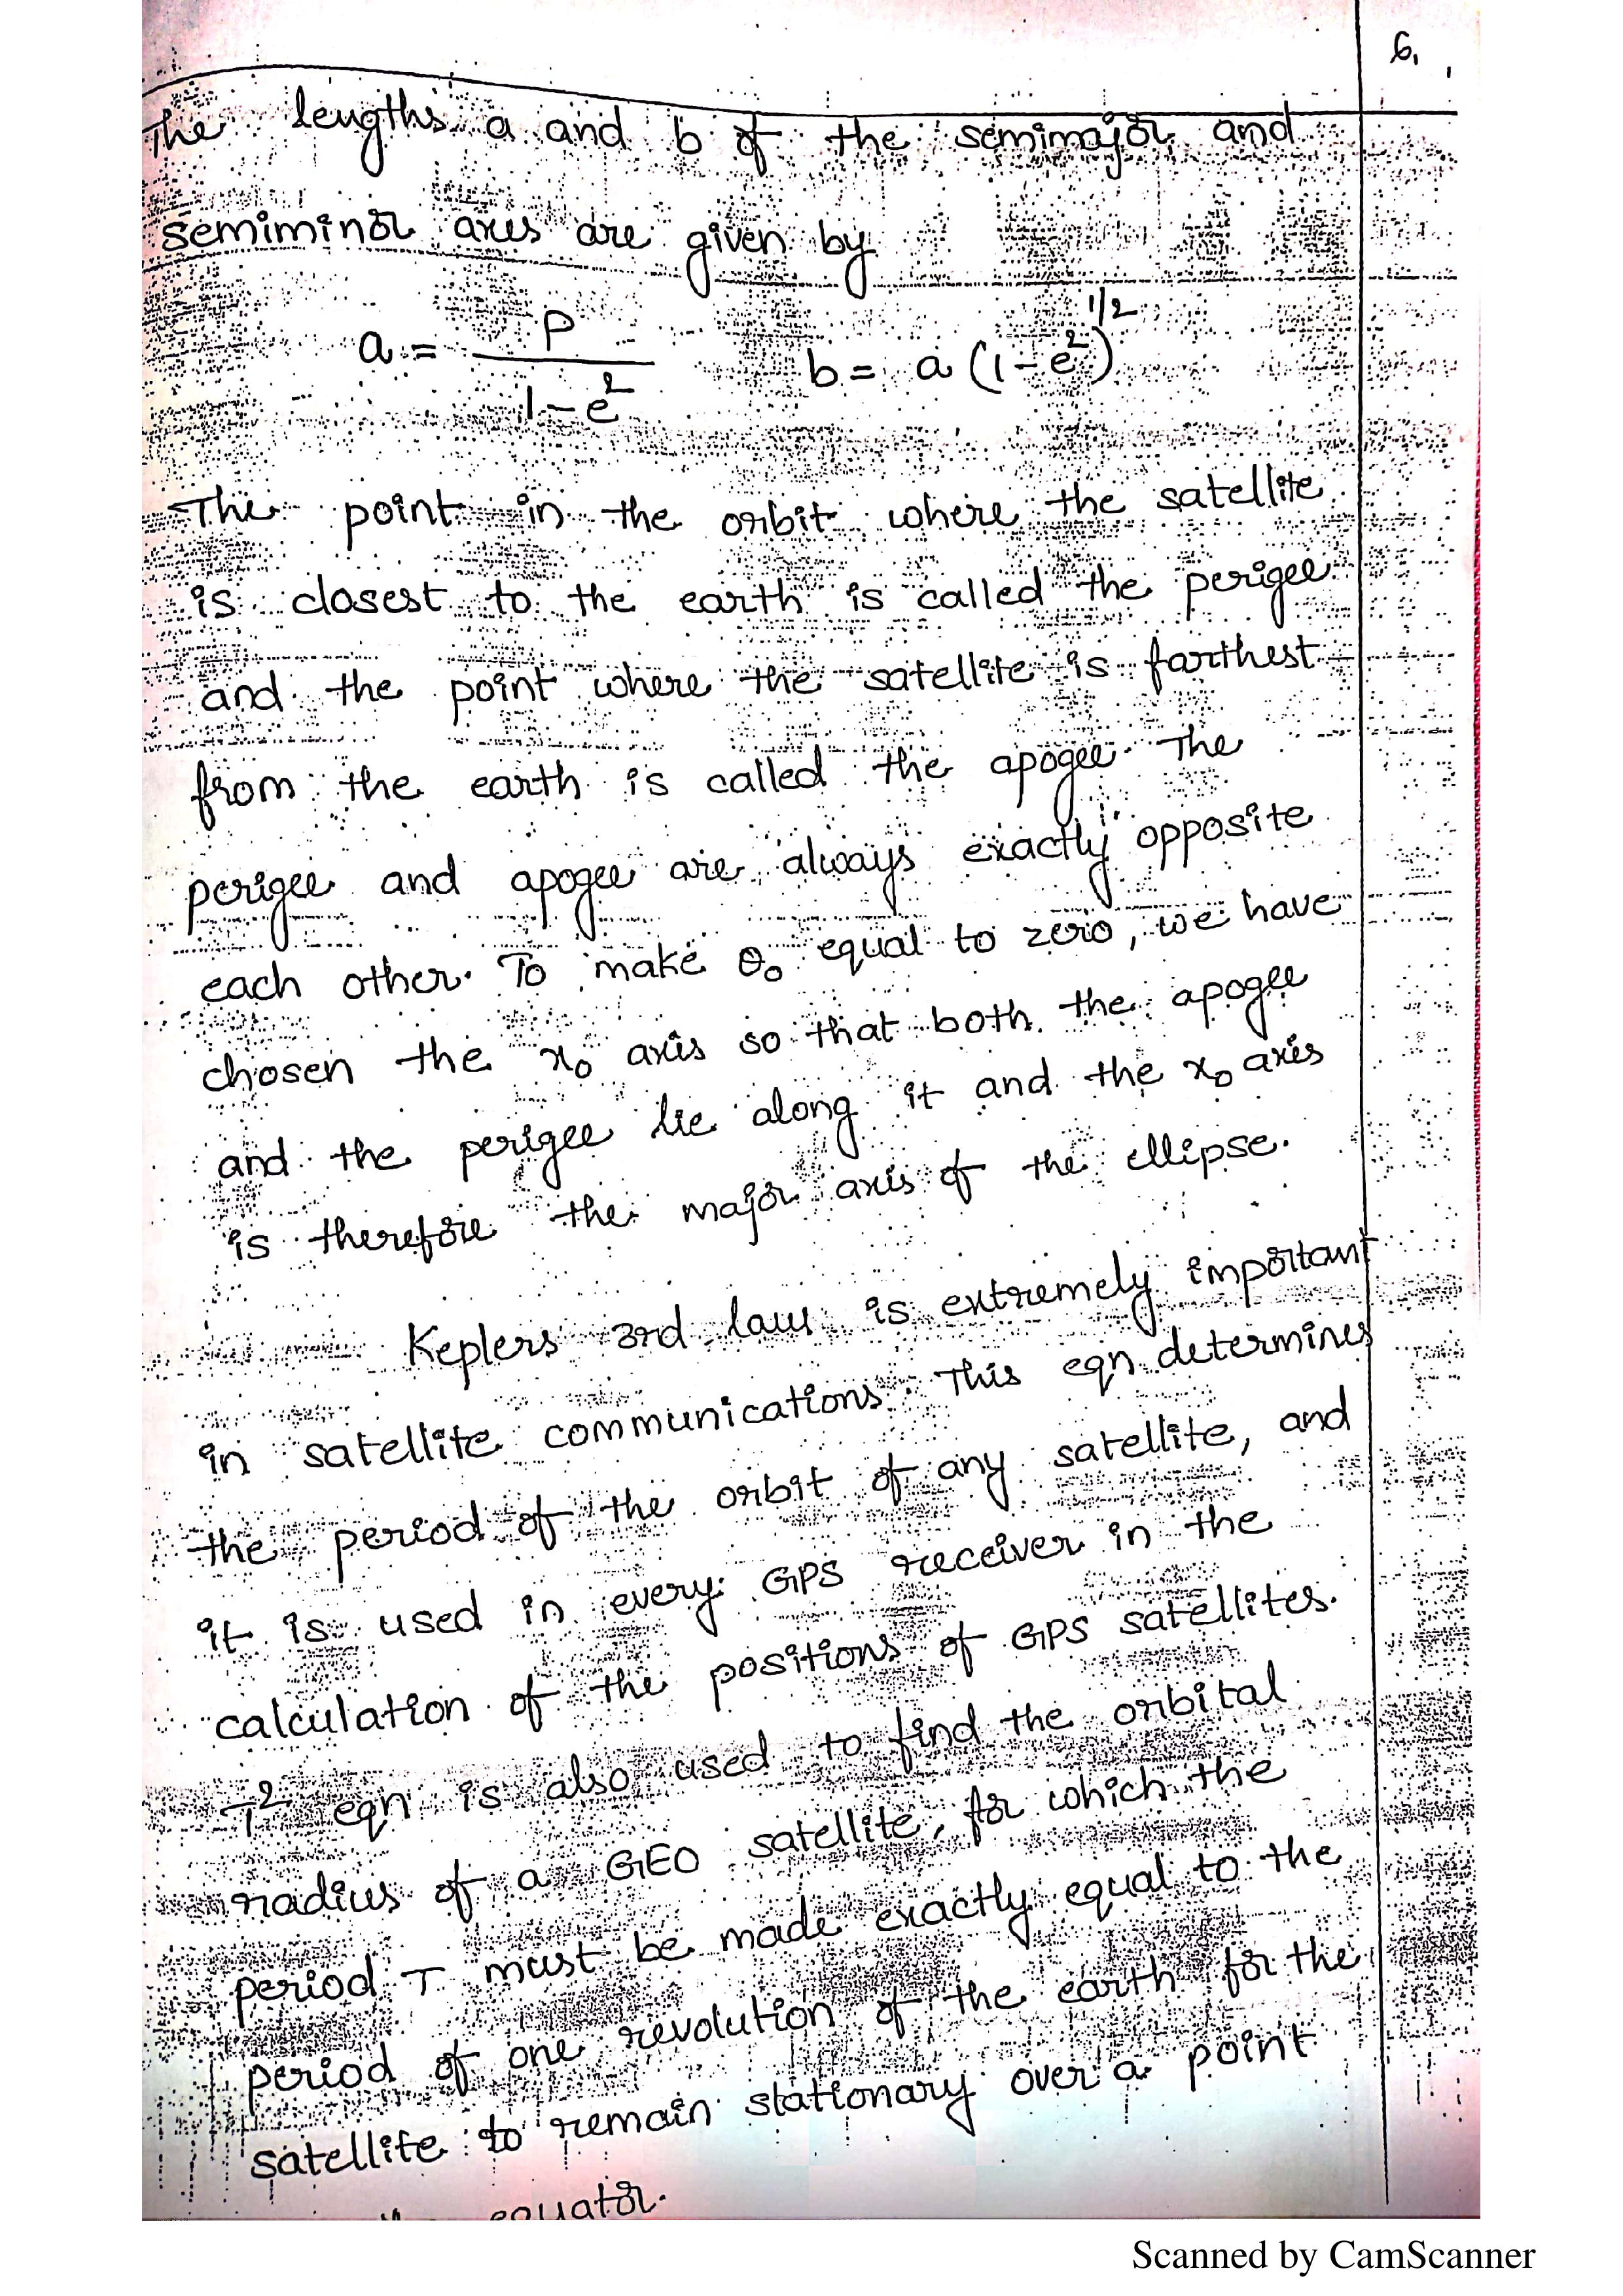 6.
The lengths a and b of the semimajor and
semiminor axes are given by
a = P / 1-e² b = a (1-e²)^1/2
The point in the orbit where the satellite
is closest to the earth is called the perigee
and the point where the satellite is farthest
from the earth is called the apogee. The
perigee and apogee are always exactly opposite
each other. To make θ₀ equal to zero, we have
chosen the x₀ axis so that both the apogee
and the perigee lie along it and the x₀ axis
is therefore the major axis of the ellipse.
Keplers 3rd law is extremely important
in satellite communications. This eqn determines
the period of the orbit of any satellite, and
it is used in every GPS receiver in the
calculation of the positions of GPS satellites.
T² eqn is also used to find the orbital
radius of a GEO satellite, for which the
period T must be made exactly equal to the
period of one revolution of the earth for the
satellite to remain stationary over a point
equator.
Scanned by CamScanner